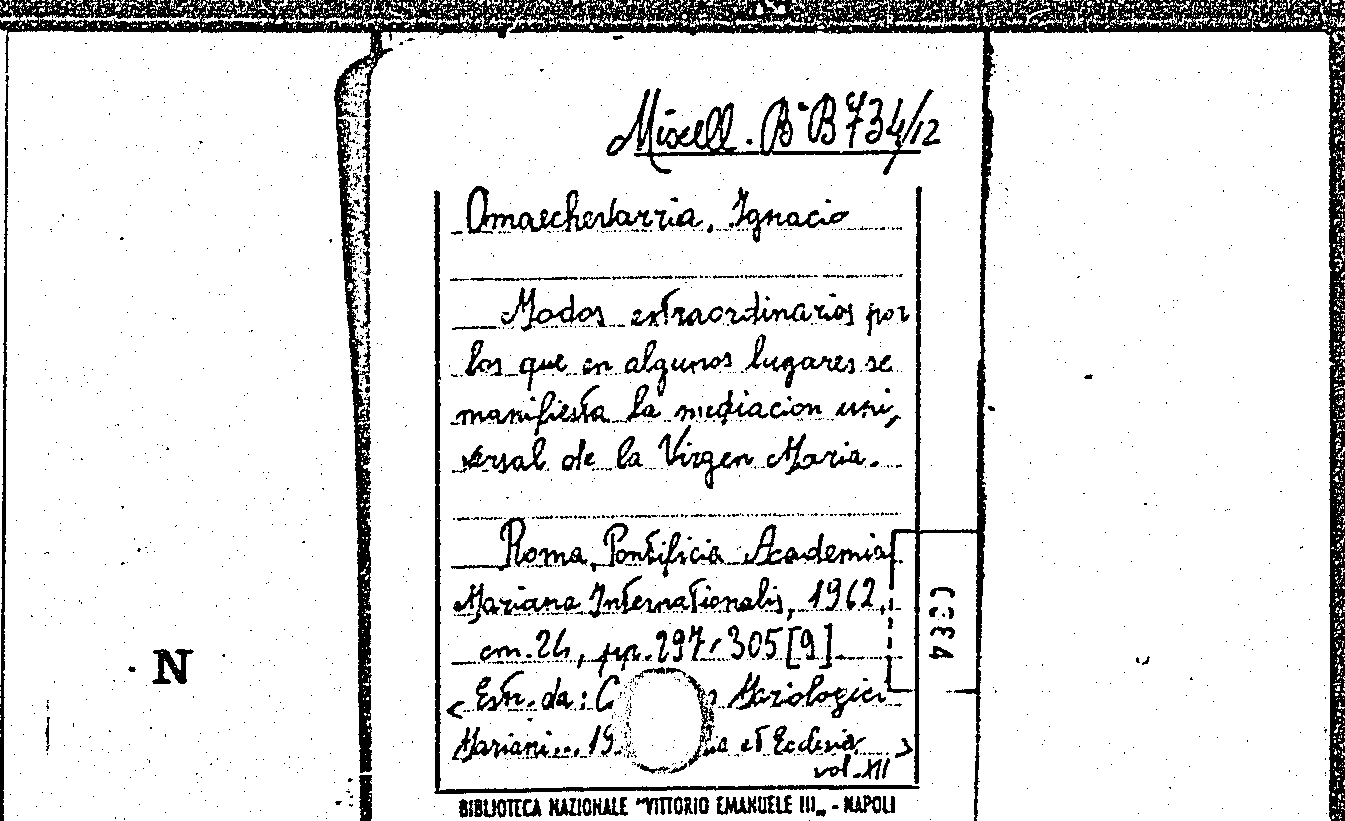 Miscell. B.B 734/12
Omaechevarria, Ignacio
Modos extraordinarios por
los que en algunos lugares se
manifiesta la mediacion uni,
versal de la Virgen Maria.
Roma, Pontificia Academia
Mariana Internationalis, 1962,
cm. 24, pp. 297-305 [9].
< Estr. da: Mariologici
Mariani... et Ecclesia >
vol. XII
BIBLIOTECA NAZIONALE "VITTORIO EMANUELE III„ - NAPOLI
N